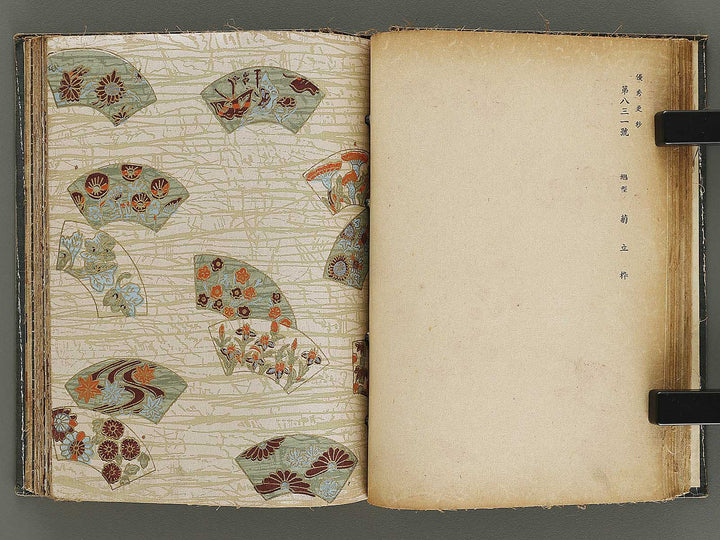 優秀更紗
第八三一號 類型 菊立枠